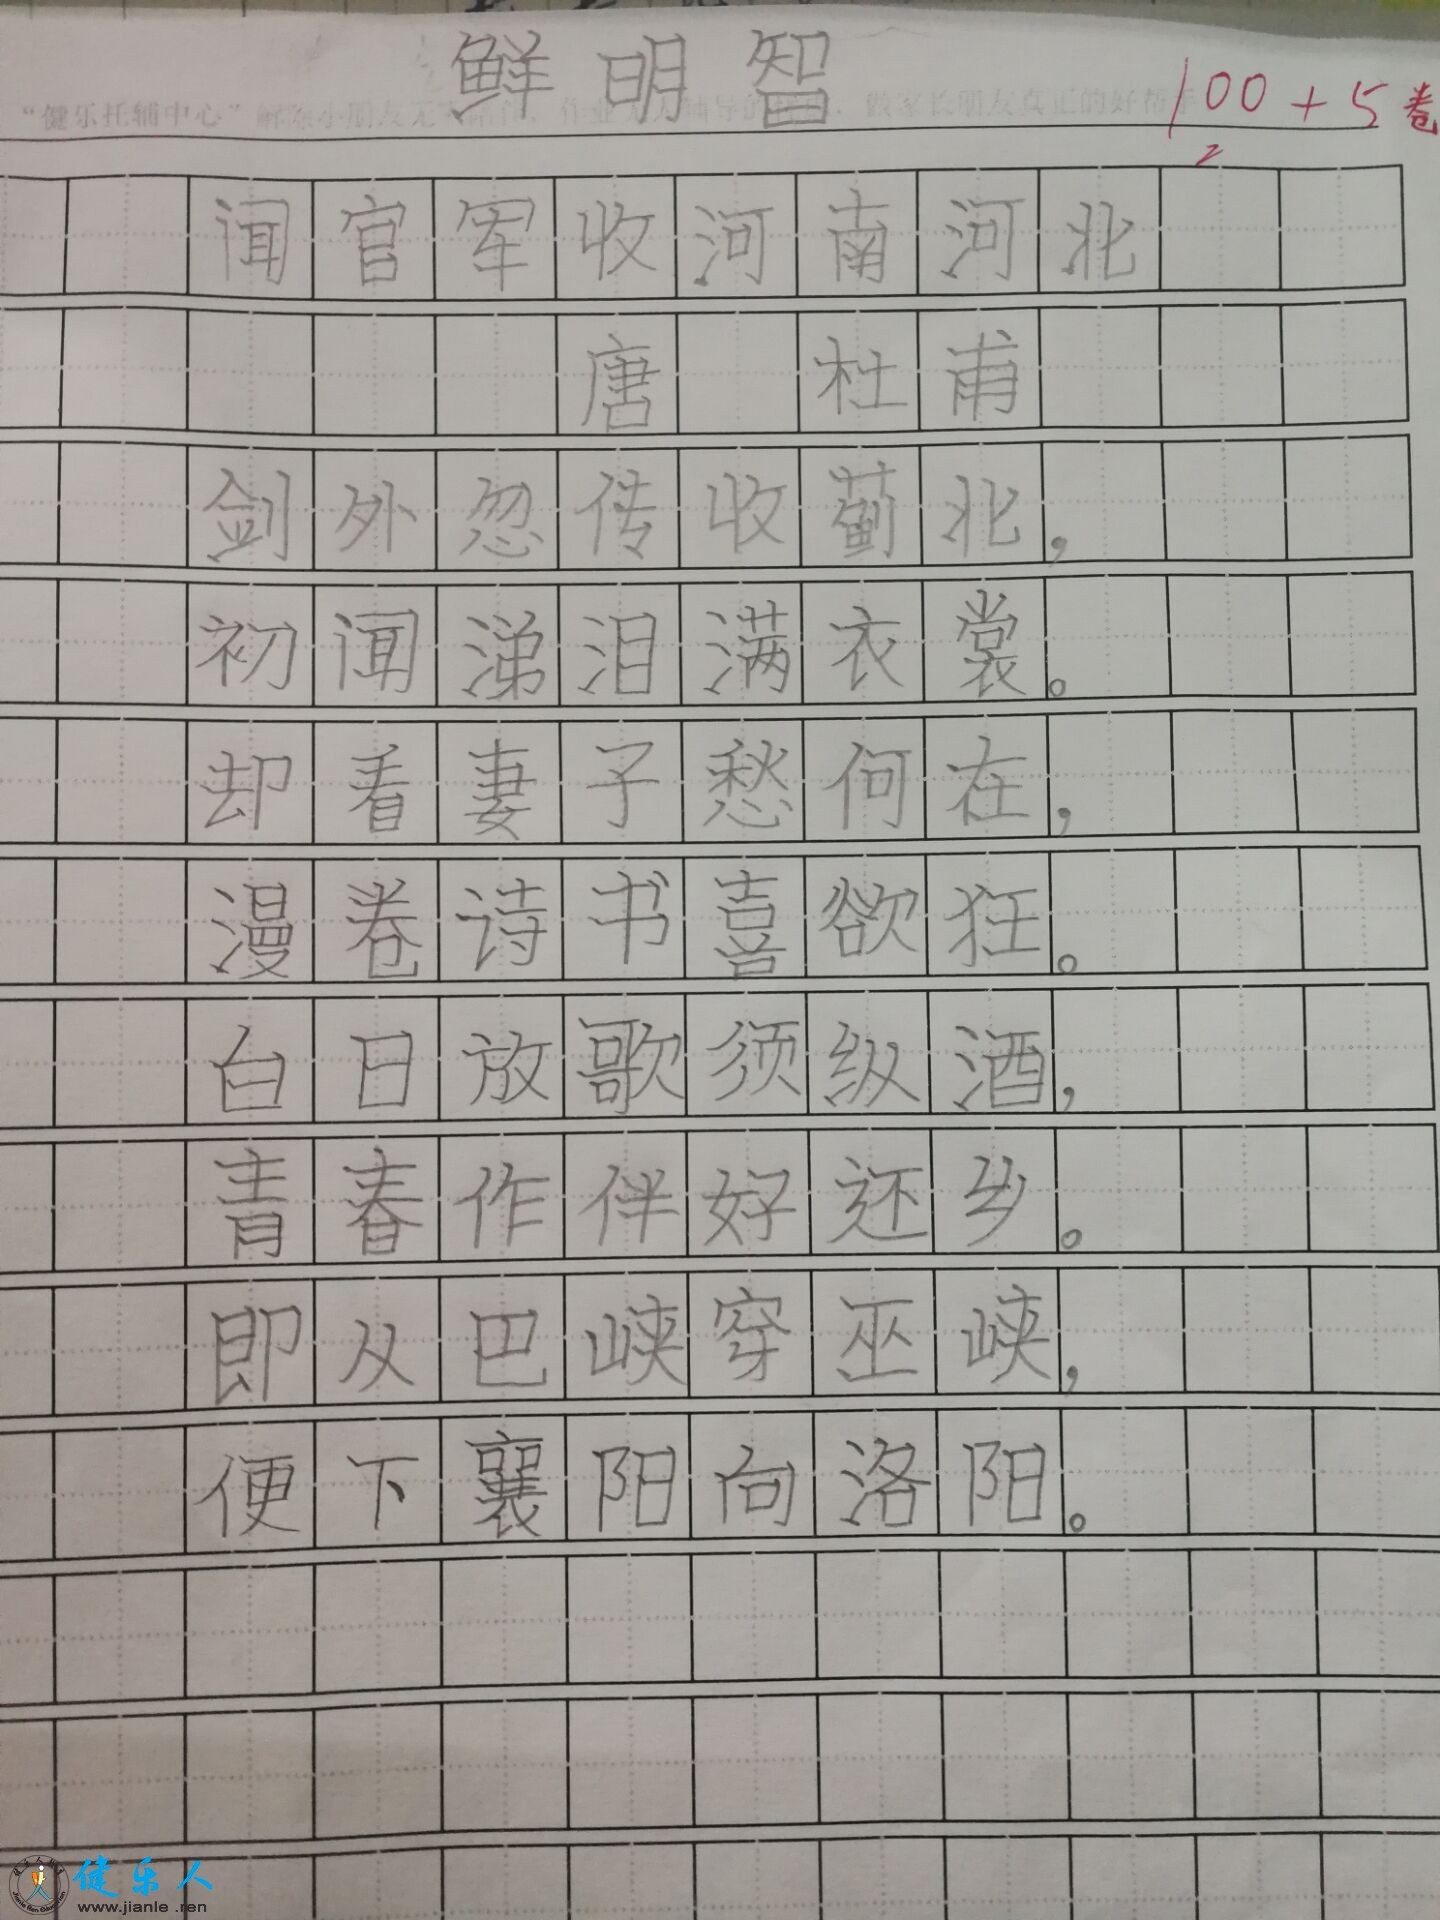 鲜明智
"健乐托辅中心"解除小朋友无
做家长朋友真正的好帮手
100+5卷
闻官军收河南河北
唐 杜甫
剑外忽传收蓟北，
初闻涕泪满衣裳。
却看妻子愁何在，
漫卷诗书喜欲狂。
白日放歌须纵酒，
青春作伴好还乡。
即从巴峡穿巫峡，
便下襄阳向洛阳。
健乐人
www.jianle.ren